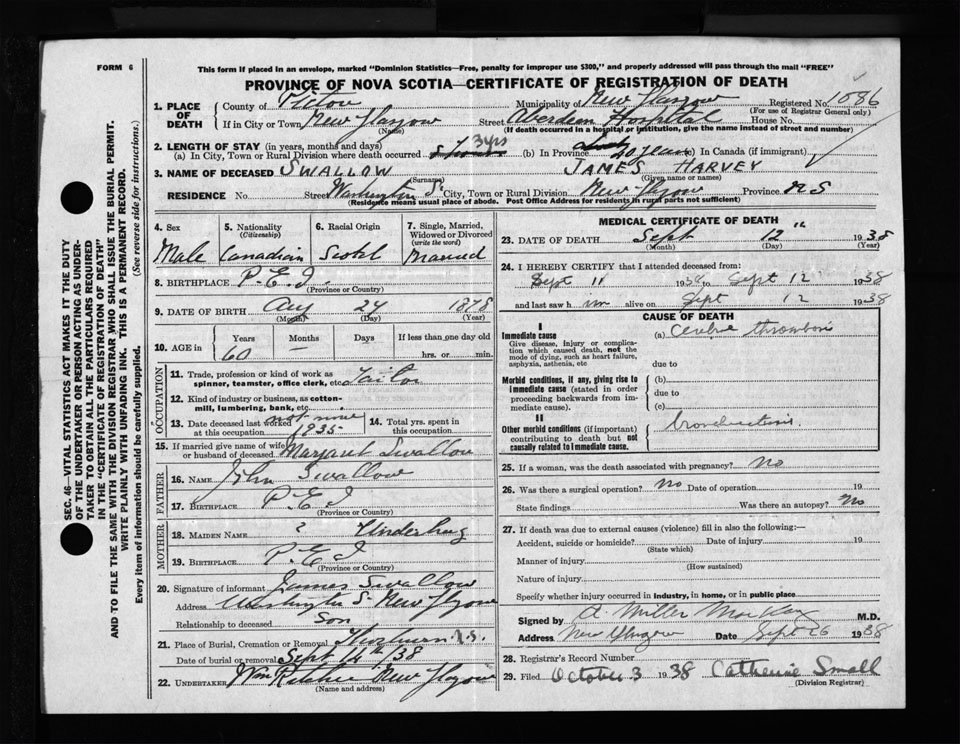 FORM 6
This form if placed in an envelope, marked "Dominion Statistics—Free, penalty for improper use $300," and properly addressed will pass through the mail "FREE"
PROVINCE OF NOVA SCOTIA—CERTIFICATE OF REGISTRATION OF DEATH
1. PLACE OF DEATH County of Pictou Municipality of New Glasgow Registered No. 1086
(For use of Registrar General only)
If in City or Town New Glasgow (Name) Street Aberdeen Hospital House No.
(If death occurred in a hospital or institution, give the name instead of street and number)
2. LENGTH OF STAY (in years, months and days)
(a) In City, Town or Rural Division where death occurred 3 yrs (b) In Province 40 years (c) In Canada (if immigrant)
3. NAME OF DECEASED SWALLOW JAMES HARVEY
(Surname) (Given name or names)
RESIDENCE No. Street Washington St City, Town or Rural Division New Glasgow Province N S
(Residence means usual place of abode. Post Office Address for residents in rural parts not sufficient)
4. Sex Male
5. Nationality (Citizenship) Canadian
6. Racial Origin Scotch
7. Single, Married, Widowed or Divorced (write the word) Married
8. BIRTHPLACE P.E.I.
(Province or Country)
9. DATE OF BIRTH Aug 24 1878
(Month) (Day) (Year)
10. AGE in Years Months Days If less than one day old
60 — hrs. or min.
OCCUPATION
11. Trade, profession or kind of work as spinner, teamster, office clerk, etc. Tailor
12. Kind of industry or business, as cotton-mill, lumbering, bank, etc.
13. Date deceased last worked at this occupation 1935
14. Total yrs. spent in this occupation
15. If married give name of wife or husband of deceased Margaret Swallow
FATHER
16. NAME John Swallow
17. BIRTHPLACE P.E.I
(Province or Country)
MOTHER
18. MAIDEN NAME ?
19. BIRTHPLACE P.E.I
(Province or Country)
20. Signature of informant James Swallow
Address Washington S New Glasgow
Relationship to deceased Son
21. Place of Burial, Cremation or Removal Thorburn N.S.
Date of burial or removal Sept 14th 38
22. UNDERTAKER Wm Ritchie New Glasgow
(Name and address)
MEDICAL CERTIFICATE OF DEATH
23. DATE OF DEATH Sept 12th 1938
(Month) (Day) (Year)
24. I HEREBY CERTIFY that I attended deceased from:
Sept 11 1938 to Sept 12 1938
and last saw him alive on Sept 12 1938
CAUSE OF DEATH
I
Immediate cause
Give disease, injury or complication which caused death, not the mode of dying, such as heart failure, asphyxia, asthenia, etc
(a) thrombosis
due to
Morbid conditions, if any, giving rise to immediate cause (stated in order proceeding backwards from immediate cause).
(b)
due to
(c)
II
Other morbid conditions (important) contributing to death but not causally related to immediate cause.
25. If a woman, was the death associated with pregnancy? No
26. Was there a surgical operation? No Date of operation 19
State findings Was there an autopsy? No
27. If death was due to external causes (violence) fill in also the following:—
Accident, suicide or homicide? Date of injury 19
(State which)
Manner of injury
(How sustained)
Nature of injury
Specify whether injury occurred in industry, in home, or in public place
Signed by A. Miller MacKay M.D.
Address New Glasgow Date Sept 26 1938
28. Registrar's Record Number
29. Filed October 3 1938 Catherine Small
(Division Registrar)
SEC. 46—VITAL STATISTICS ACT MAKES IT THE DUTY
OF THE UNDERTAKER OR PERSON ACTING AS UNDER-
TAKER TO OBTAIN ALL THE PARTICULARS REQUIRED
IN THE "CERTIFICATE OF REGISTRATION OF DEATH"
AND TO FILE THE SAME WITH THE DIVISION REGISTRAR WHO SHALL ISSUE THE BURIAL PERMIT.
WRITE PLAINLY WITH UNFADING INK. THIS IS A PERMANENT RECORD.
Every item of information should be carefully supplied. (See reverse side for instructions.)